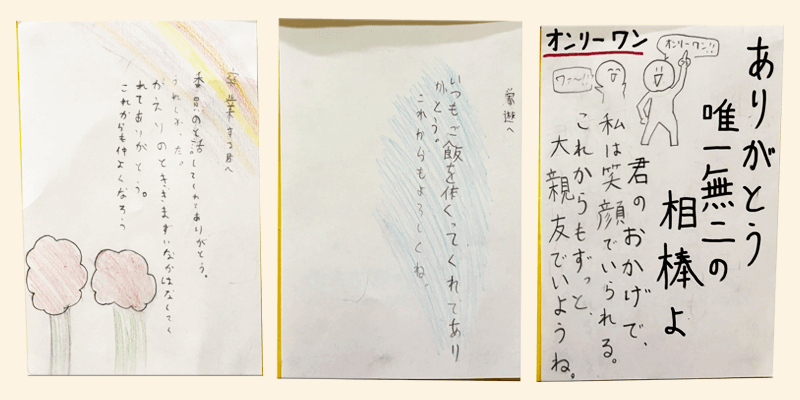 卒業する君へ
してくれてありがとう。
うれしかった。
がえりのとききまずいなかはなしてく
れてありがとう。
これからも仲よくなろう
いつもご飯を作くってくれてあり
がとう。
これからもよろしくね。
オンリーワン
オンリーワン!!
ワァ〜!!
ありがとう
唯一無二の
相棒よ
君のおかげで、
私は笑顔でいられる。
これからもずっと、
大親友でいようね。